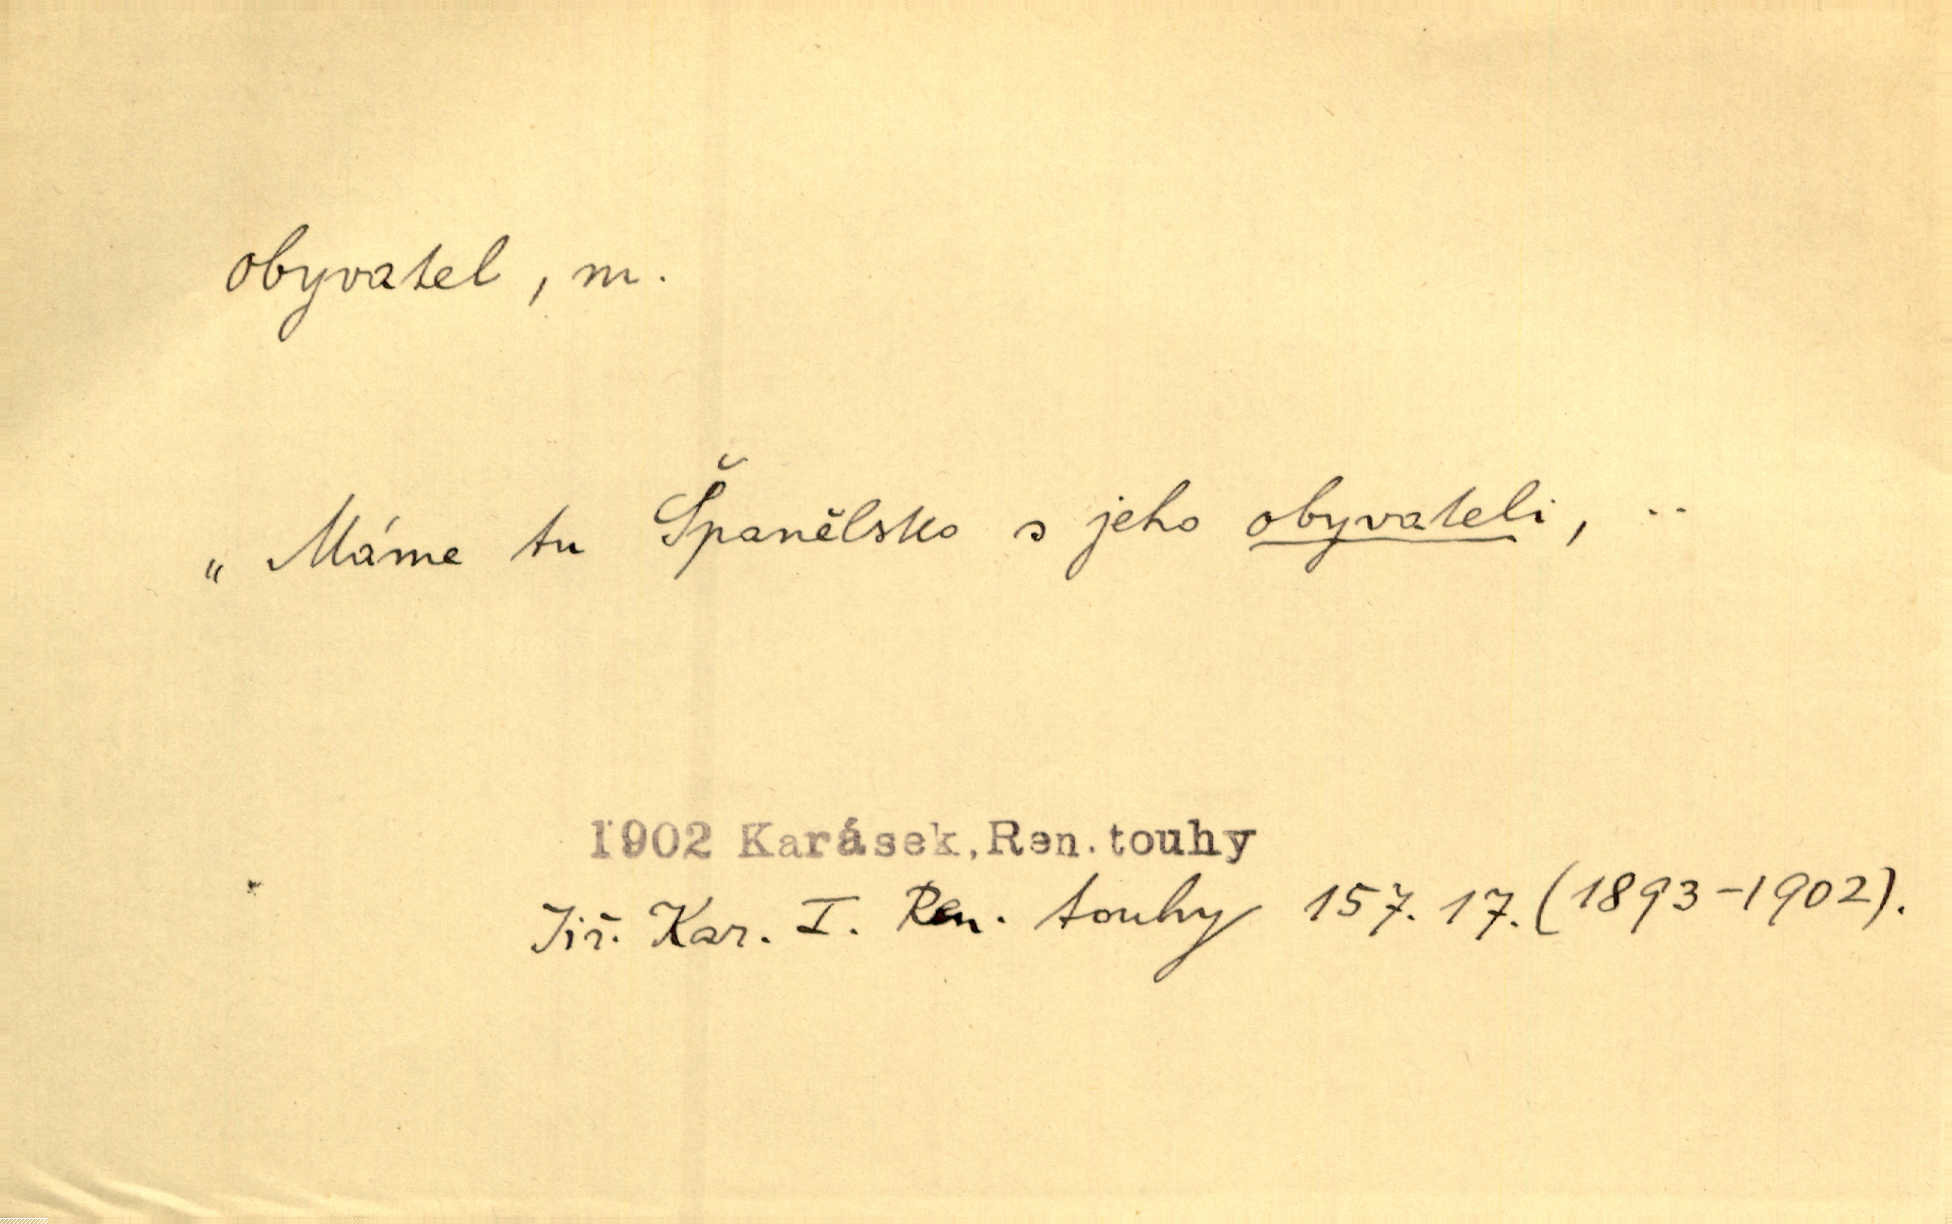 obyvatel, m.
„Máme tu Španělsko s jeho obyvateli, ..
1902 Karásek, Ren. touhy
Jiř. Kar. I. Ren. touhy 157. 17. (1893-1902).